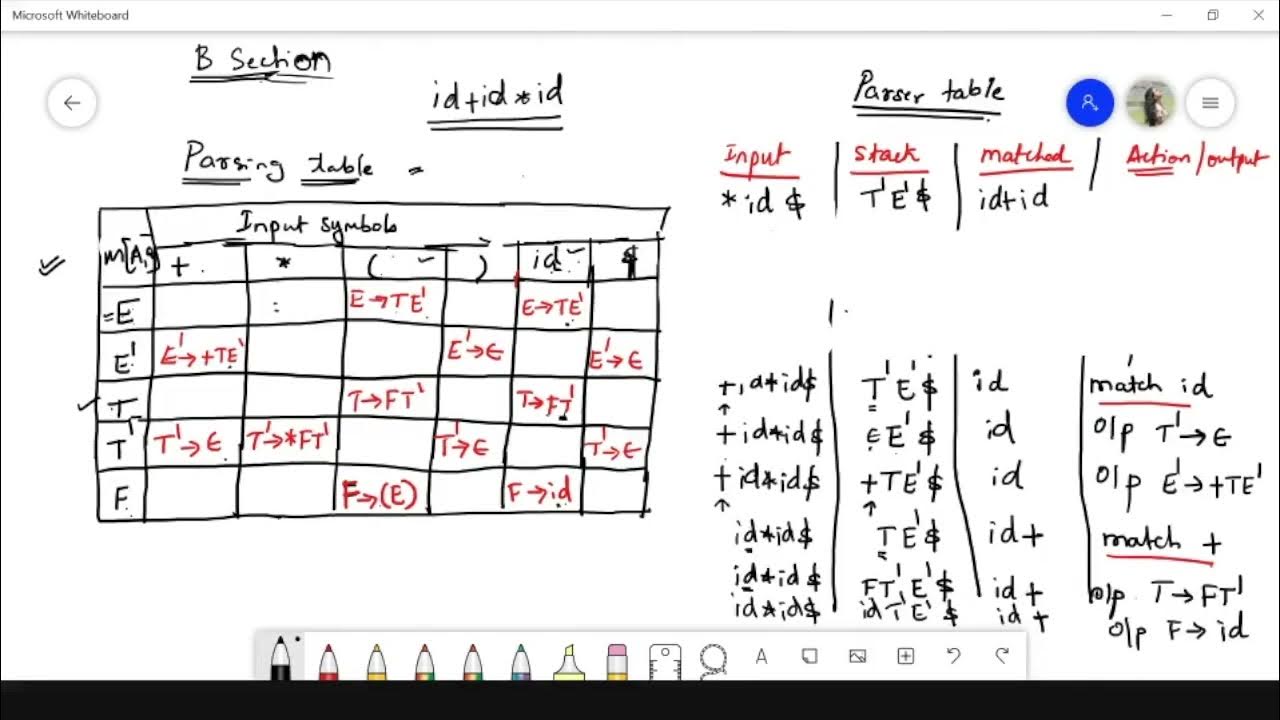 Microsoft Whiteboard
B Section
id+id*id
Parsing table =
Input symbols
M[A,a] + * ( ) id $
=E : E→TE' E→TE'
E' E'→+TE' E'→ϵ E'→ϵ
T T→FT' T→FT'
T' T'→ϵ T'→*FT' T'→ϵ T'→ϵ
F F→(E) F→id
Parser table
Input stack matched Action/output
*id$ T'E'$ id+id
+id*id$ T'E'$ id match id
+id*id$ ϵE'$ id o/p T'→ϵ
+id*id$ +TE'$ id o/p E'→+TE'
id*id$ TE'$ id+ match +
id*id$ FT'E'$ id+ o/p T→FT'
id*id$ idT'E'$ id+ o/p F→id
A